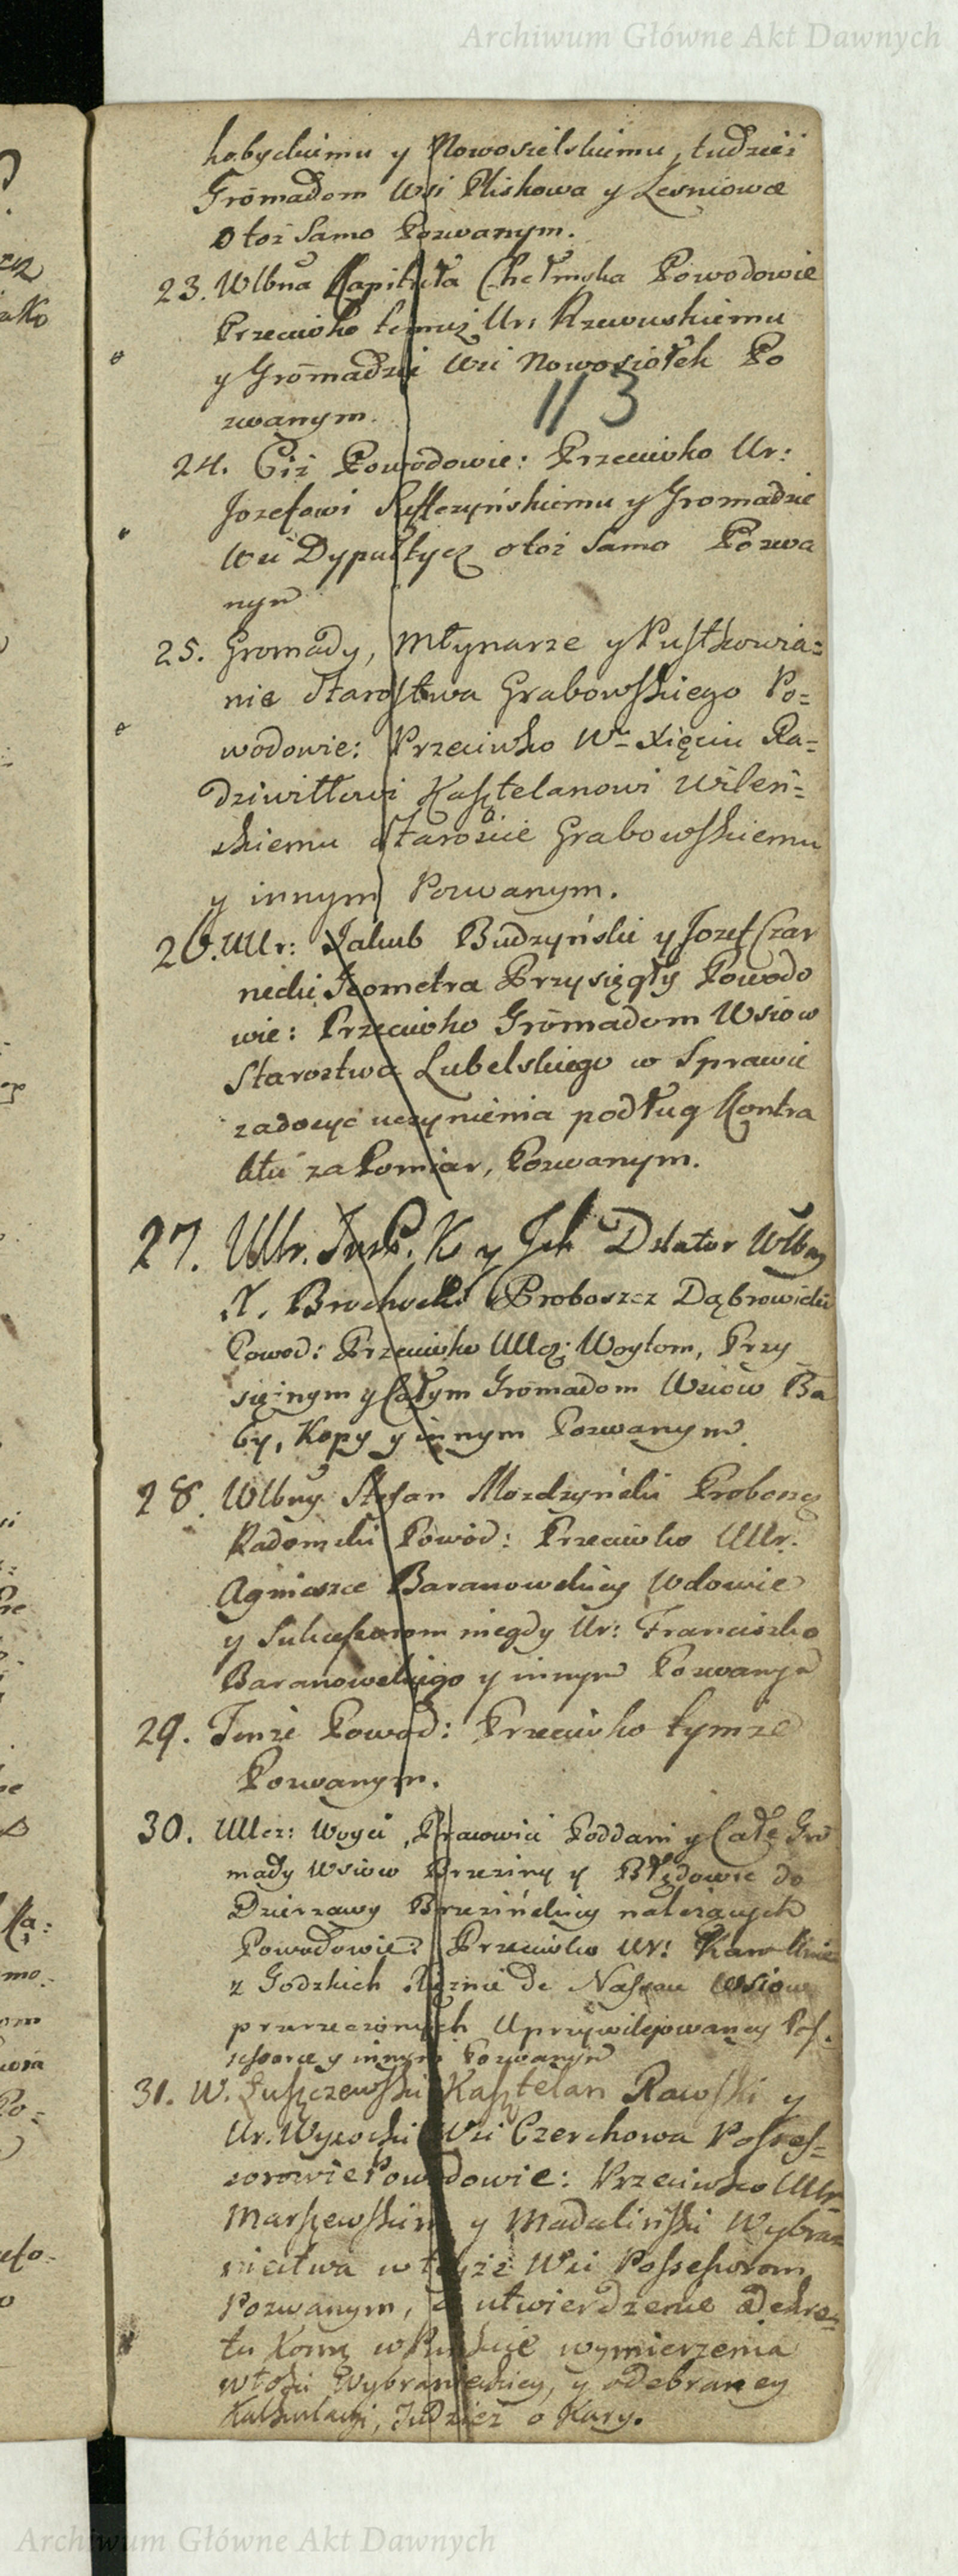 Archiwum Główne Akt Dawnych
hobyckiemu y Nowosielskiemu, tudzież
Gromadom Wsi Pliskowa y Lesniowa
o toż Samo Pozwanym.
23. Wlbna Kapituła Chełmska Powodowie
Przeciwko temuż Ur: Rzewuskiemu
y Gromadzie Wsi Nowosiołek Po
zwanym.
113
24. Ciż Powodowie: Przeciwko Ur:
Jozefowi y Gromadzie
Wsi otoż Samo Pozwa
nym
25. Gromady, Młynarze y Pustkowia=
nie Starostwa Grabowskiego Po=
wodowie: Przeciwko Wu Xięciu Ra=
dziwiłłowi Kasztelanowi Wileń=
skiemu Staroście Grabowskiemu
y innym Pozwanym.
26. UUr: Jakub Budzyński y Jozef Czar
necki Jeometra Przysięgły Powodo
wie: Przeciwko Gromadom Wsiow
Starostwa Lubelskiego w Sprawie
zadosyć uczynienia podług Kontra
ktu za Pomiar, Pozwanym.
27. UUr. Inst. K y Ich Delator Wlbny
X. Brochocki Proboszcz Dąbrowicki
Powod: Przeciwko UUcz: Woytom, Przy
siężnym y Całym Gromadom Wsiow Ba
by, Kopy y innym Pozwanym
28. Wlbny Stefan Mozdzyński Proboszcz
Radomski Powod: Przeciwko UUr.
Agniszce Baranowskiey Wdowie
y Sukcessorom niegdy Ur: Franciszka
Baranowskiego y innym Pozwanym
29. Tenże Powod: Przeciwko tymże
Pozwanym.
30. UUcz: Woyci, Prawowici Poddani y Całe Gro
mady Wsiow Brzeziny y Błędowie do
Dzierzawy Brzezińskiey należących
Powodowie: Przeciwko Ur:
z Godzkich Xiężnie de Nassau Wsiow
przerzeczonych Uprzywilejowaney Pos.
sessorce y innym Pozwanym
31. W. Łuszczewski Kasztelan Rawski y
Ur. Wysocki Wsi Czerchowa Posses=
sorowie Powodowie: Przeciwko UUr.
Marszewskim y Madaliński Wybra=
niectwa w teyże Wsi Possessorom
Pozwanym, o utwierdzenie Dekre=
tu Kom: w Punkcie wymierzenia
włoki Wybranieckiey, y odebraney
Kalkulacyi, Tudzież o Kary.
Archiwum Główne Akt Dawnych